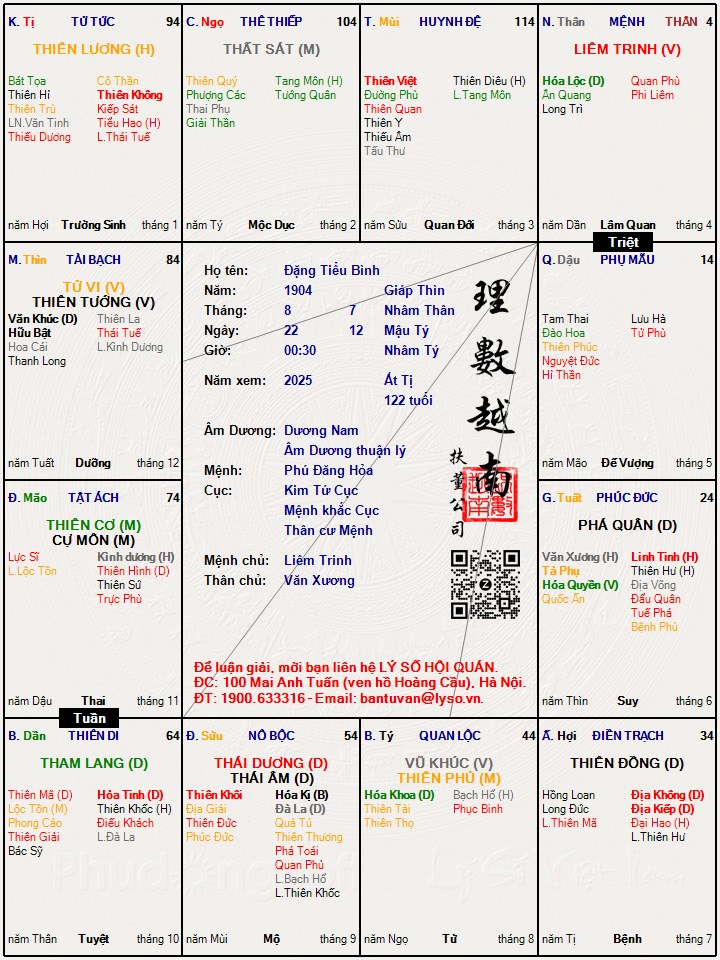 K. Tị TỬ TỨC 94
THIÊN LƯƠNG (H)
Bát Tọa Cô Thần
Thiên Hỉ Thiên Không
Thiên Trù Kiếp Sát
LN.Văn Tinh Tiểu Hao (H)
Thiếu Dương L.Thái Tuế
năm Hợi Trường Sinh tháng 1
C. Ngọ THÊ THIẾP 104
THẤT SÁT (M)
Thiên Quý Tang Môn (H)
Phượng Các Tướng Quân
Thai Phụ
Giải Thần
năm Tý Mộc Dục tháng 2
T. Mùi HUYNH ĐỆ 114
Thiên Việt Thiên Diêu (H)
Đường Phù L.Tang Môn
Thiên Quan
Thiên Y
Thiếu Âm
Tấu Thư
năm Sửu Quan Đới tháng 3
N. Thân MỆNH THÂN 4
LIÊM TRINH (V)
Hóa Lộc (D) Quan Phù
Ân Quang Phi Liêm
Long Trì
năm Dần Lâm Quan tháng 4
Triệt
M. Thìn TÀI BẠCH 84
TỬ VI (V)
THIÊN TƯỚNG (V)
Văn Khúc (D) Thiên La
Hữu Bật Thái Tuế
Hoa Cái L.Kình Dương
Thanh Long
năm Tuất Dưỡng tháng 12
Họ tên: Đặng Tiểu Bình
Năm: 1904 Giáp Thìn
Tháng: 8 7 Nhâm Thân
Ngày: 22 12 Mậu Tý
Giờ: 00:30 Nhâm Tý
Năm xem: 2025 Ất Tị
122 tuổi
Âm Dương: Dương Nam
Âm Dương thuận lý
Mệnh: Phú Đăng Hỏa
Cục: Kim Tứ Cục
Mệnh khắc Cục
Thân cư Mệnh
Mệnh chủ: Liêm Trinh
Thân chủ: Văn Xương
理數越南
扶董公司
Để luận giải, mời bạn liên hệ LÝ SỐ HỘI QUÁN.
ĐC: 100 Mai Anh Tuấn (ven hồ Hoàng Cầu), Hà Nội.
ĐT: 1900.633316 - Email: bantuvan@lyso.vn.
Q. Dậu PHỤ MẪU 14
Tam Thai Lưu Hà
Đào Hoa Tử Phù
Thiên Phúc
Nguyệt Đức
Hỉ Thần
năm Mão Đế Vượng tháng 5
Đ. Mão TẬT ÁCH 74
THIÊN CƠ (M)
CỰ MÔN (M)
Lực Sĩ Kình dương (H)
L.Lộc Tồn Thiên Hình (D)
Thiên Sứ
Trực Phù
năm Dậu Thai tháng 11
Tuần
G. Tuất PHÚC ĐỨC 24
PHÁ QUÂN (D)
Văn Xương (H) Linh Tinh (H)
Tả Phụ Thiên Hư (H)
Hóa Quyền (V) Địa Võng
Quốc Ấn Đẩu Quân
Tuế Phá
Bệnh Phù
năm Thìn Suy tháng 6
B. Dần THIÊN DI 64
THAM LANG (D)
Thiên Mã (D) Hỏa Tinh (D)
Lộc Tồn (M) Thiên Khốc (H)
Phong Cáo Điếu Khách
Thiên Giải L.Đà La
Bác Sỹ
năm Thân Tuyệt tháng 10
Đ. Sửu NÔ BỘC 54
THÁI DƯƠNG (D)
THÁI ÂM (D)
Thiên Khôi Hóa Kị (B)
Địa Giải Đà La (D)
Thiên Đức Quả Tú
Phúc Đức Thiên Thương
Phá Toái
Quan Phủ
L.Bạch Hổ
L.Thiên Khốc
năm Mùi Mộ tháng 9
B. Tý QUAN LỘC 44
VŨ KHÚC (V)
THIÊN PHỦ (M)
Hóa Khoa (D) Bạch Hổ (H)
Thiên Tài Phục Binh
Thiên Thọ
năm Ngọ Tử tháng 8
Ấ. Hợi ĐIỀN TRẠCH 34
THIÊN ĐỒNG (D)
Hồng Loan Địa Không (D)
Long Đức Địa Kiếp (D)
L.Thiên Mã Đại Hao (H)
L.Thiên Hư
năm Tị Bệnh tháng 7